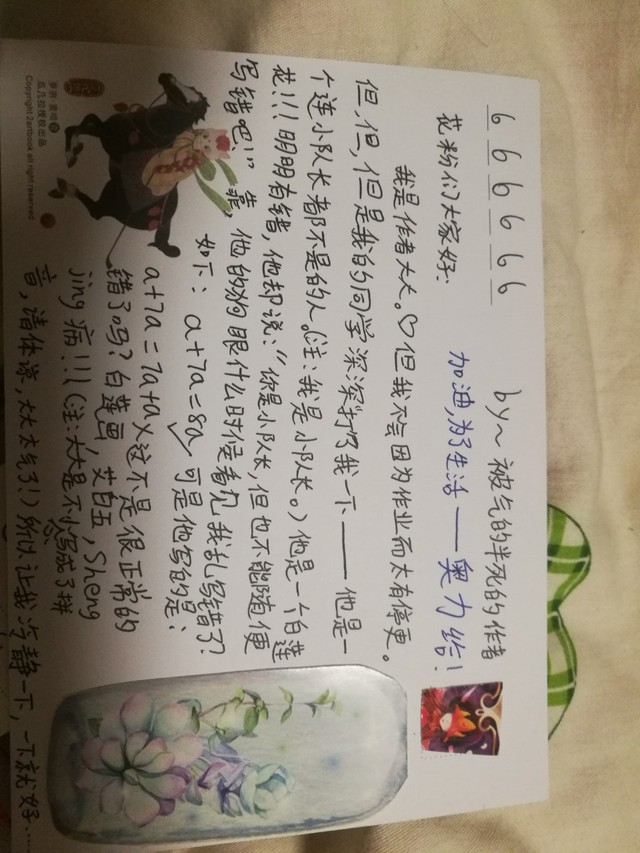 6 6 6 6 6 6
花粉们大家好:
by~被气的半死的作者
加油,为了生活——奥力给!
我是作者大大。♡但我不会因为作业而太有停更。
但,但,但是我的同学深深打了我一下——他是一
个连小队长都不是的人。(注:我是小队长。)他是一个白莲
花!!!明明有错,他却说:“你是小队长,但也不能随便
写错吧!”靠,他的狗眼什么时候看见我乱写错了?
如下:a+7a=8a✓可是他写的是:
a+7a=7a+a×这不是很正常的
错了吗?白莲画,艾白五,Sheng
jing病!!!(注:大大是不小心写成了拼
音,请体谅,大大太气了!)所以让我冷静一下,一下就好……
瓜几拉授权出品
Copyright 2artbook all right reserved